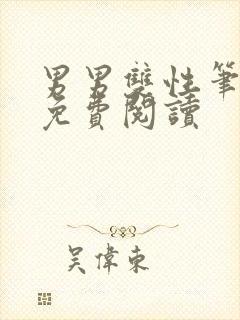 男男雙性筆
免費閱讀
吳偉東